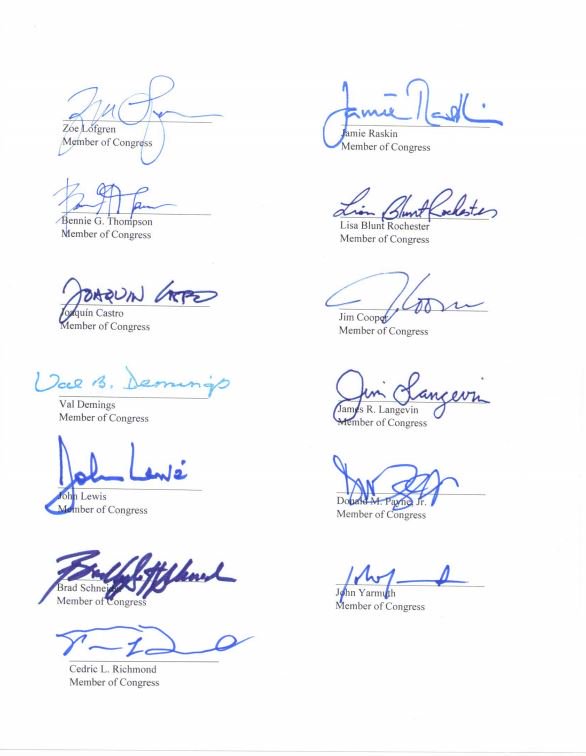 Zoe Lofgren
Member of Congress
Jamie Raskin
Jamie Raskin
Member of Congress
Bennie G. Thompson
Member of Congress
Lisa Blunt Rochester
Lisa Blunt Rochester
Member of Congress
Joaquin Castro
Joaquín Castro
Member of Congress
Jim Cooper
Member of Congress
Val B. Demings
Val Demings
Member of Congress
Jim Langevin
James R. Langevin
Member of Congress
John Lewis
John Lewis
Member of Congress
Donald M. Payne, Jr.
Member of Congress
Brad Schneider
Member of Congress
John Yarmuth
Member of Congress
Cedric L. Richmond
Member of Congress